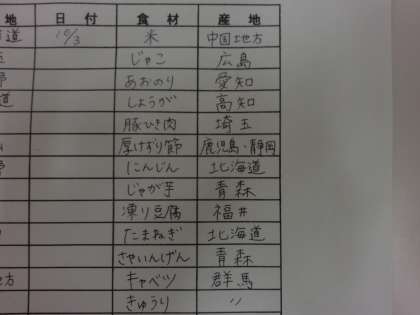 地 日付 食材 産地
道 10/3 米 中国地方
じゃこ 広島
あおのり 愛知
道 しょうが 高知
豚ひき肉 埼玉
厚けずり節 鹿児島・静岡
にんじん 北海道
じゃが芋 青森
凍り豆腐 福井
たまねぎ 北海道
さやいんげん 青森
方 キャベツ 群馬
きゅうり 〃